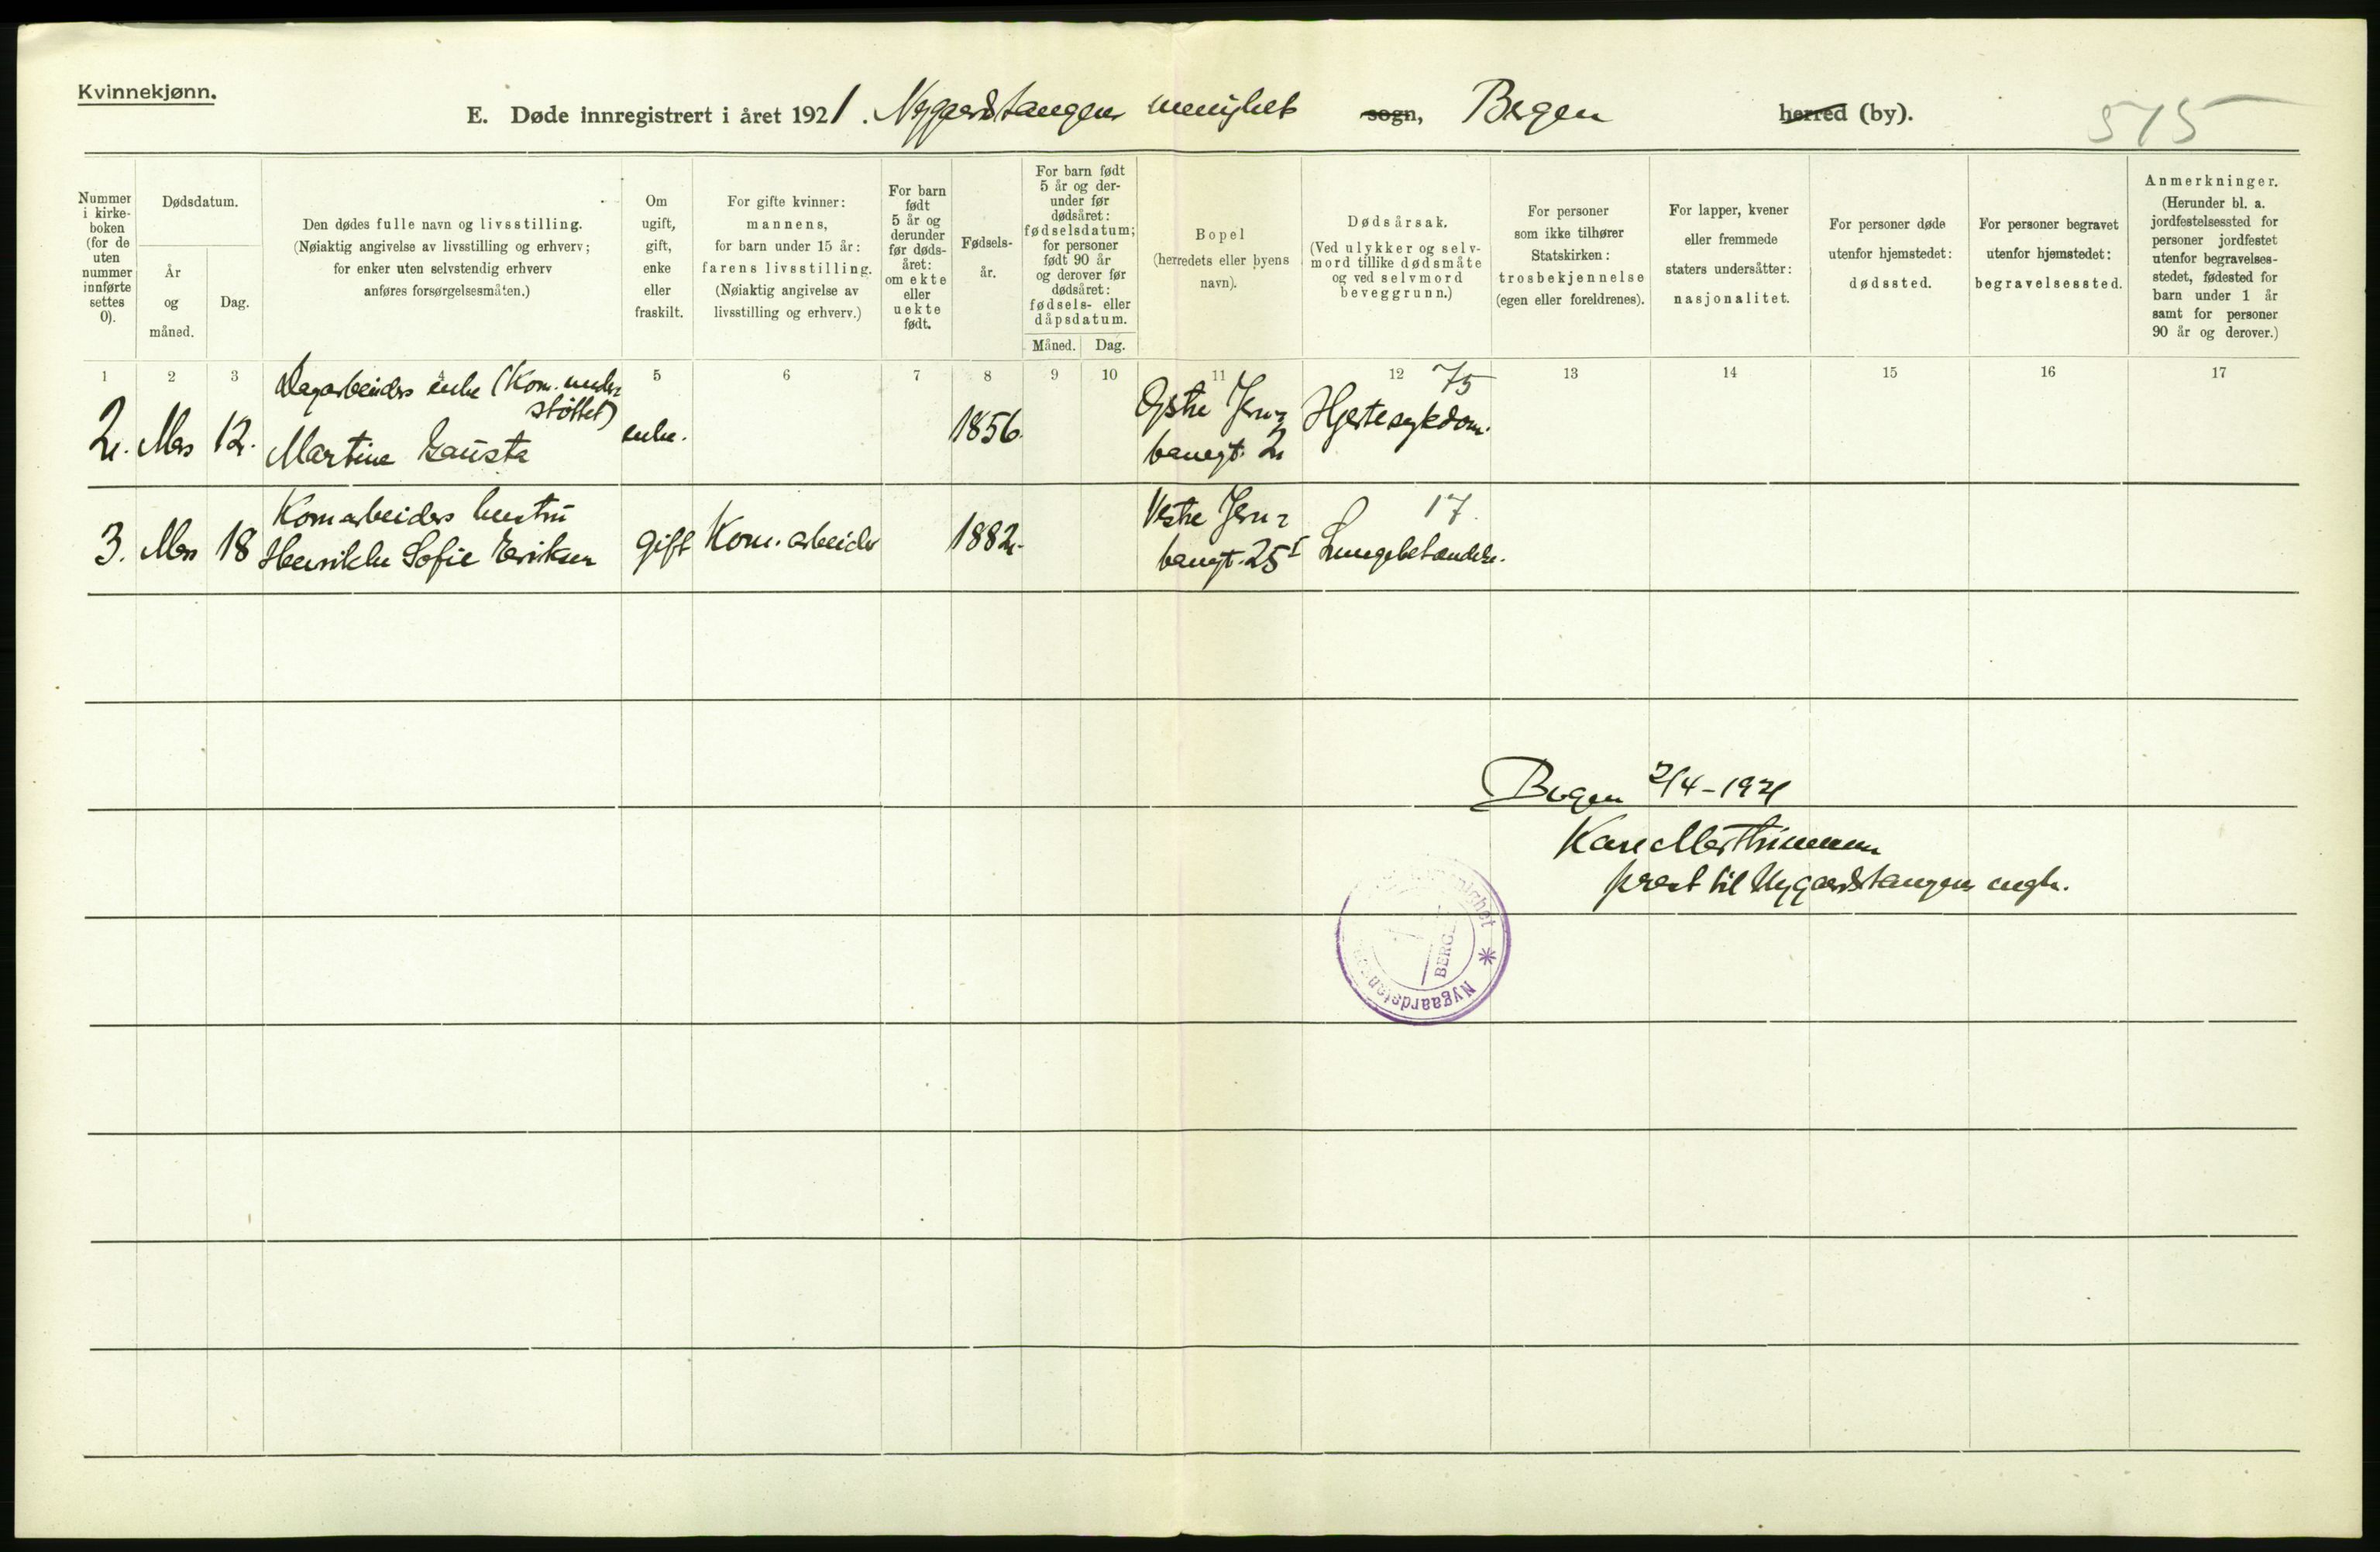 Kvinnekjønn.
E. Døde innregistrert i året 1921. Nygaardstangens menighet sogn, Bergen herred (by).
515
Nummer i kirke-boken (for de uten nummer innførte settes 0).
Dødsdatum.
År og måned.
Dag.
Den dødes fulle navn og livsstilling.
(Nøiaktig angivelse av livsstilling og erhverv;
for enker uten selvstendig erhverv
anføres forsørgelsesmåten.)
Om
ugift,
gift,
enke
eller
fraskilt.
For gifte kvinner:
mannens,
for barn under 15 år:
farens livsstilling.
(Nøiaktig angivelse av
livsstilling og erhverv.)
For barn
født
5 år og
derunder
før døds-
året:
om ekte
eller
uekte
født.
Fødsels-
år.
For barn født
5 år og der-
under før
dødsåret:
fødselsdatum;
for personer
født 90 år
og derover før
dødsåret:
fødsels- eller
dåpsdatum.
Måned. Dag.
Bopel
(herredets eller byens
navn).
Dødsårsak.
(Ved ulykker og selv-
mord tillike dødsmåte
og ved selvmord
beveggrunn.)
For personer
som ikke tilhører
Statskirken:
trosbekjennelse
(egen eller foreldrenes).
For lapper, kvener
eller fremmede
staters undersåtter:
nasjonalitet.
For personer døde
utenfor hjemstedet:
dødssted.
For personer begravet
utenfor hjemstedet:
begravelsessted.
Anmerkninger.
(Herunder bl. a.
jordfestelsessted for
personer jordfestet
utenfor begravelses-
stedet, fødested for
barn under 1 år
samt for personer
90 år og derover.)
1 2 3 5 6 7 8 9 10 11 12 13 14 15 16 17
Dagarbeiders enke (Kom. under
støttet)
2. Mars 12. Martine Gausta enke. 1856.
Østre Jern-
banegt. 2
75
Hjertesykdom.
Kom arbeiders hustru
3. Mars 18 Henrikke Sofie Eriksen gift Kom. arbeider 1882.
Vestre Jern-
banegt. 25 I
17.
Lungebetændelse.
Bergen 2/4-1921
prest til Nygaardstangens mght.
Nygaardstangen menighet * BERG